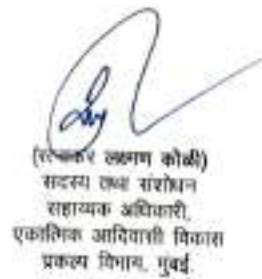 (रत्नाकर लक्ष्मण कोळी)
सदस्य तथा संशोधन
सहाय्यक अधिकारी,
एकात्मिक आदिवासी विकास
प्रकल्प विभाग, मुंबई.